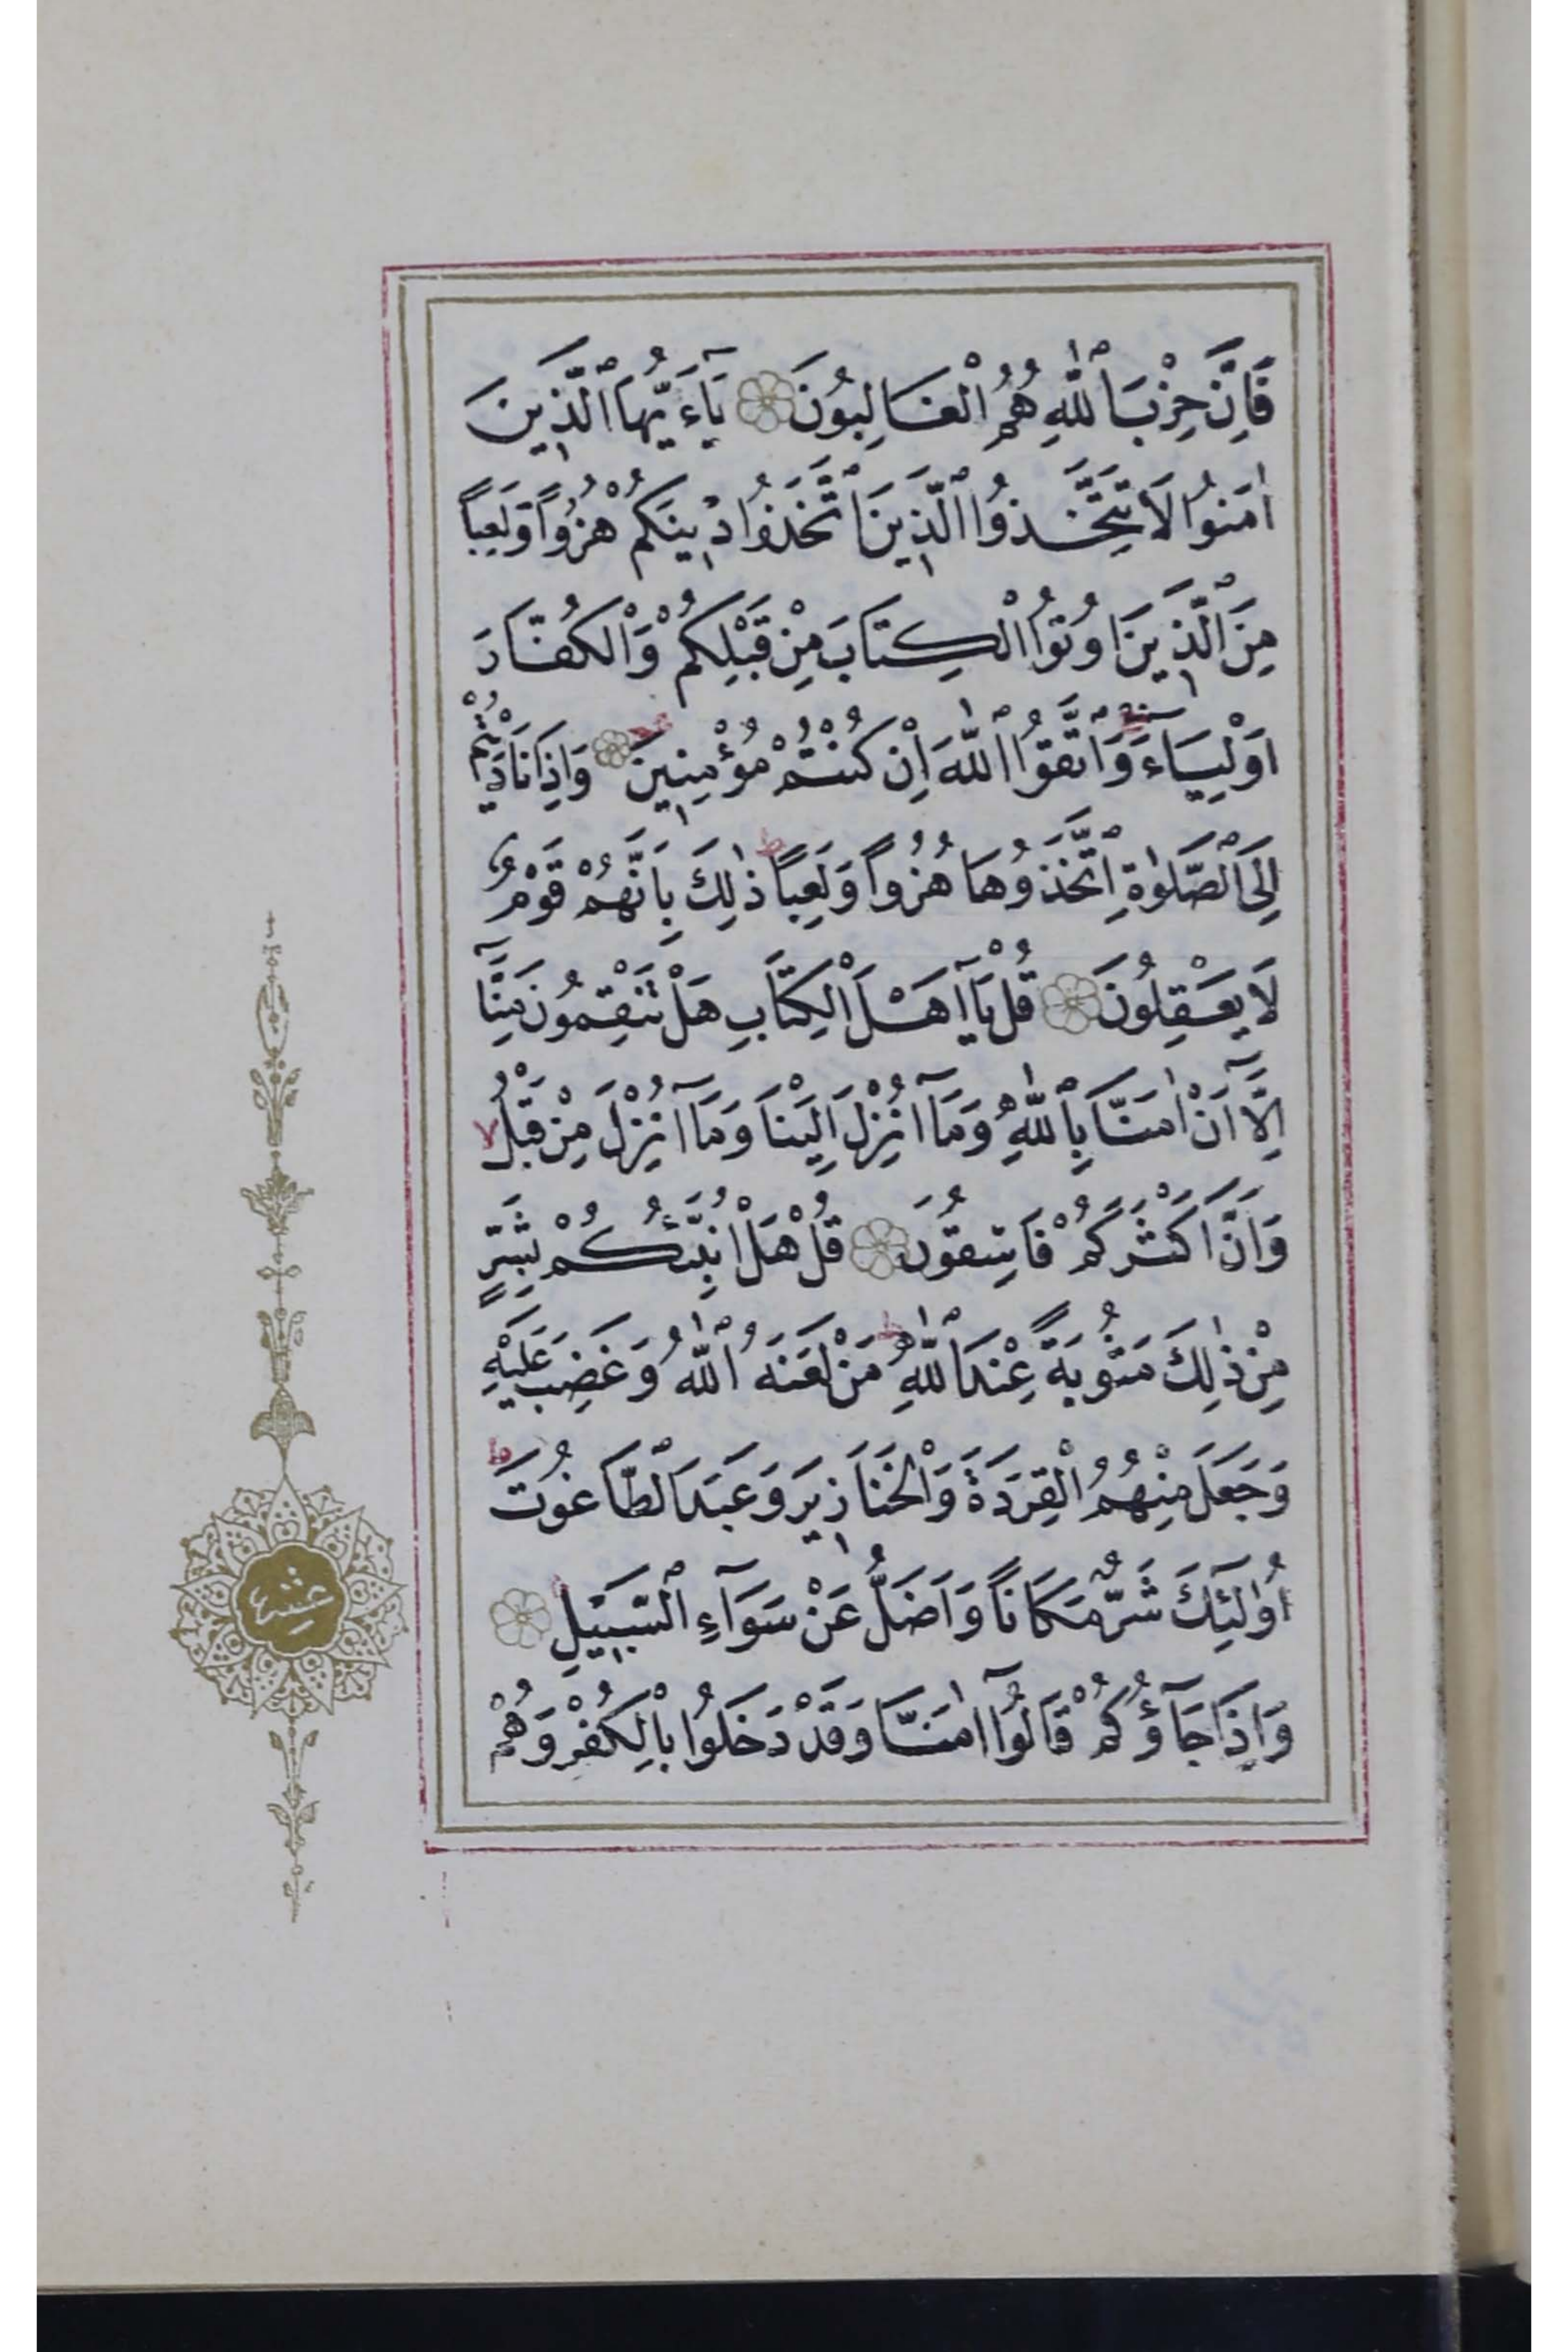 فَاِنَّ حِزْبَ ٱللّٰهِ هُمُ الْغَالِبُونَ يَآءَيُّهَا ٱلَّذ۪ينَ
اٰمَنُوا لَا تَتَّخِذُوا ٱلَّذ۪ينَ ٱتَّخَذُوا د۪ينَكُمْ هُزُوًا وَلَعِبًا
مِنَ ٱلَّذ۪ينَ اُوتُوا الْكِتَابَ مِنْ قَبْلِكُمْ وَالْكُفَّارَ
اَوْلِيَآءَ وَٱتَّقُوا ٱللّٰهَ اِنْ كُنْتُمْ مُؤْمِن۪ينَ وَاِذَا نَادَيْتُمْ
اِلَى ٱلصَّلٰوةِ ٱتَّخَذُوهَا هُزُوًا وَلَعِبًا ط ذٰلِكَ بِاَنَّهُمْ قَوْمٌ
لَا يَعْقِلُونَ قُلْ يَآ اَهْلَ الْكِتَابِ هَلْ تَنْقِمُونَ مِنَّآ
اِلَّآ اَنْ اٰمَنَّا بِٱللّٰهِ وَمَآ اُنْزِلَ اِلَيْنَا وَمَآ اُنْزِلَ مِنْ قَبْلُ لا
وَاَنَّ اَكْثَرَكُمْ فَاسِقُونَ قُلْ هَلْ اُنَبِّئُكُمْ بِشَرٍّ
مِنْ ذٰلِكَ مَثُوبَةً عِنْدَ ٱللّٰهِ ط مَنْ لَعَنَهُ ٱللّٰهُ وَغَضِبَ عَلَيْهِ
وَجَعَلَ مِنْهُمُ الْقِرَدَةَ وَالْخَنَاز۪يرَ وَعَبَدَ ٱلطَّاغُوتَ ط
اُولٰٓئِكَ شَرٌّ مَكَانًا وَاَضَلُّ عَنْ سَوَآءِ ٱلسَّب۪يلِ
وَاِذَا جَآؤُكُمْ قَالُوٓا اٰمَنَّا وَقَدْ دَخَلُوا بِالْكُفْرِ وَهُمْ
عشر